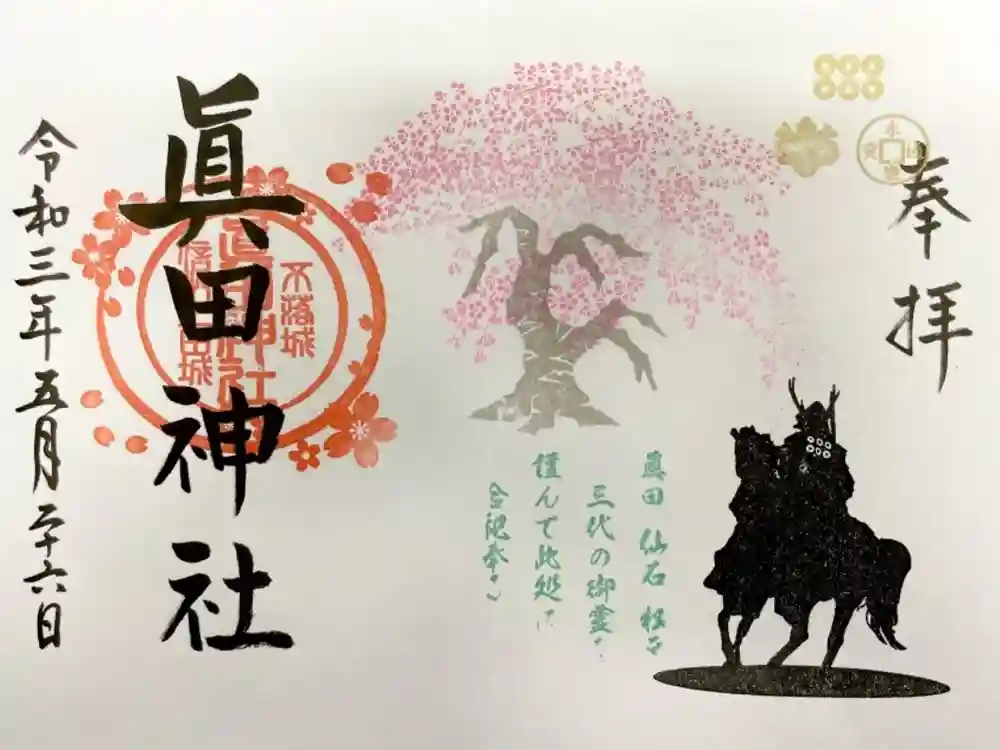 奉拝
眞田 仙石 松平
三代の御霊を
謹んで此処に
合祀奉る
眞田神社
不落城
眞田神社
信州上田城
令和三年五月二十六日